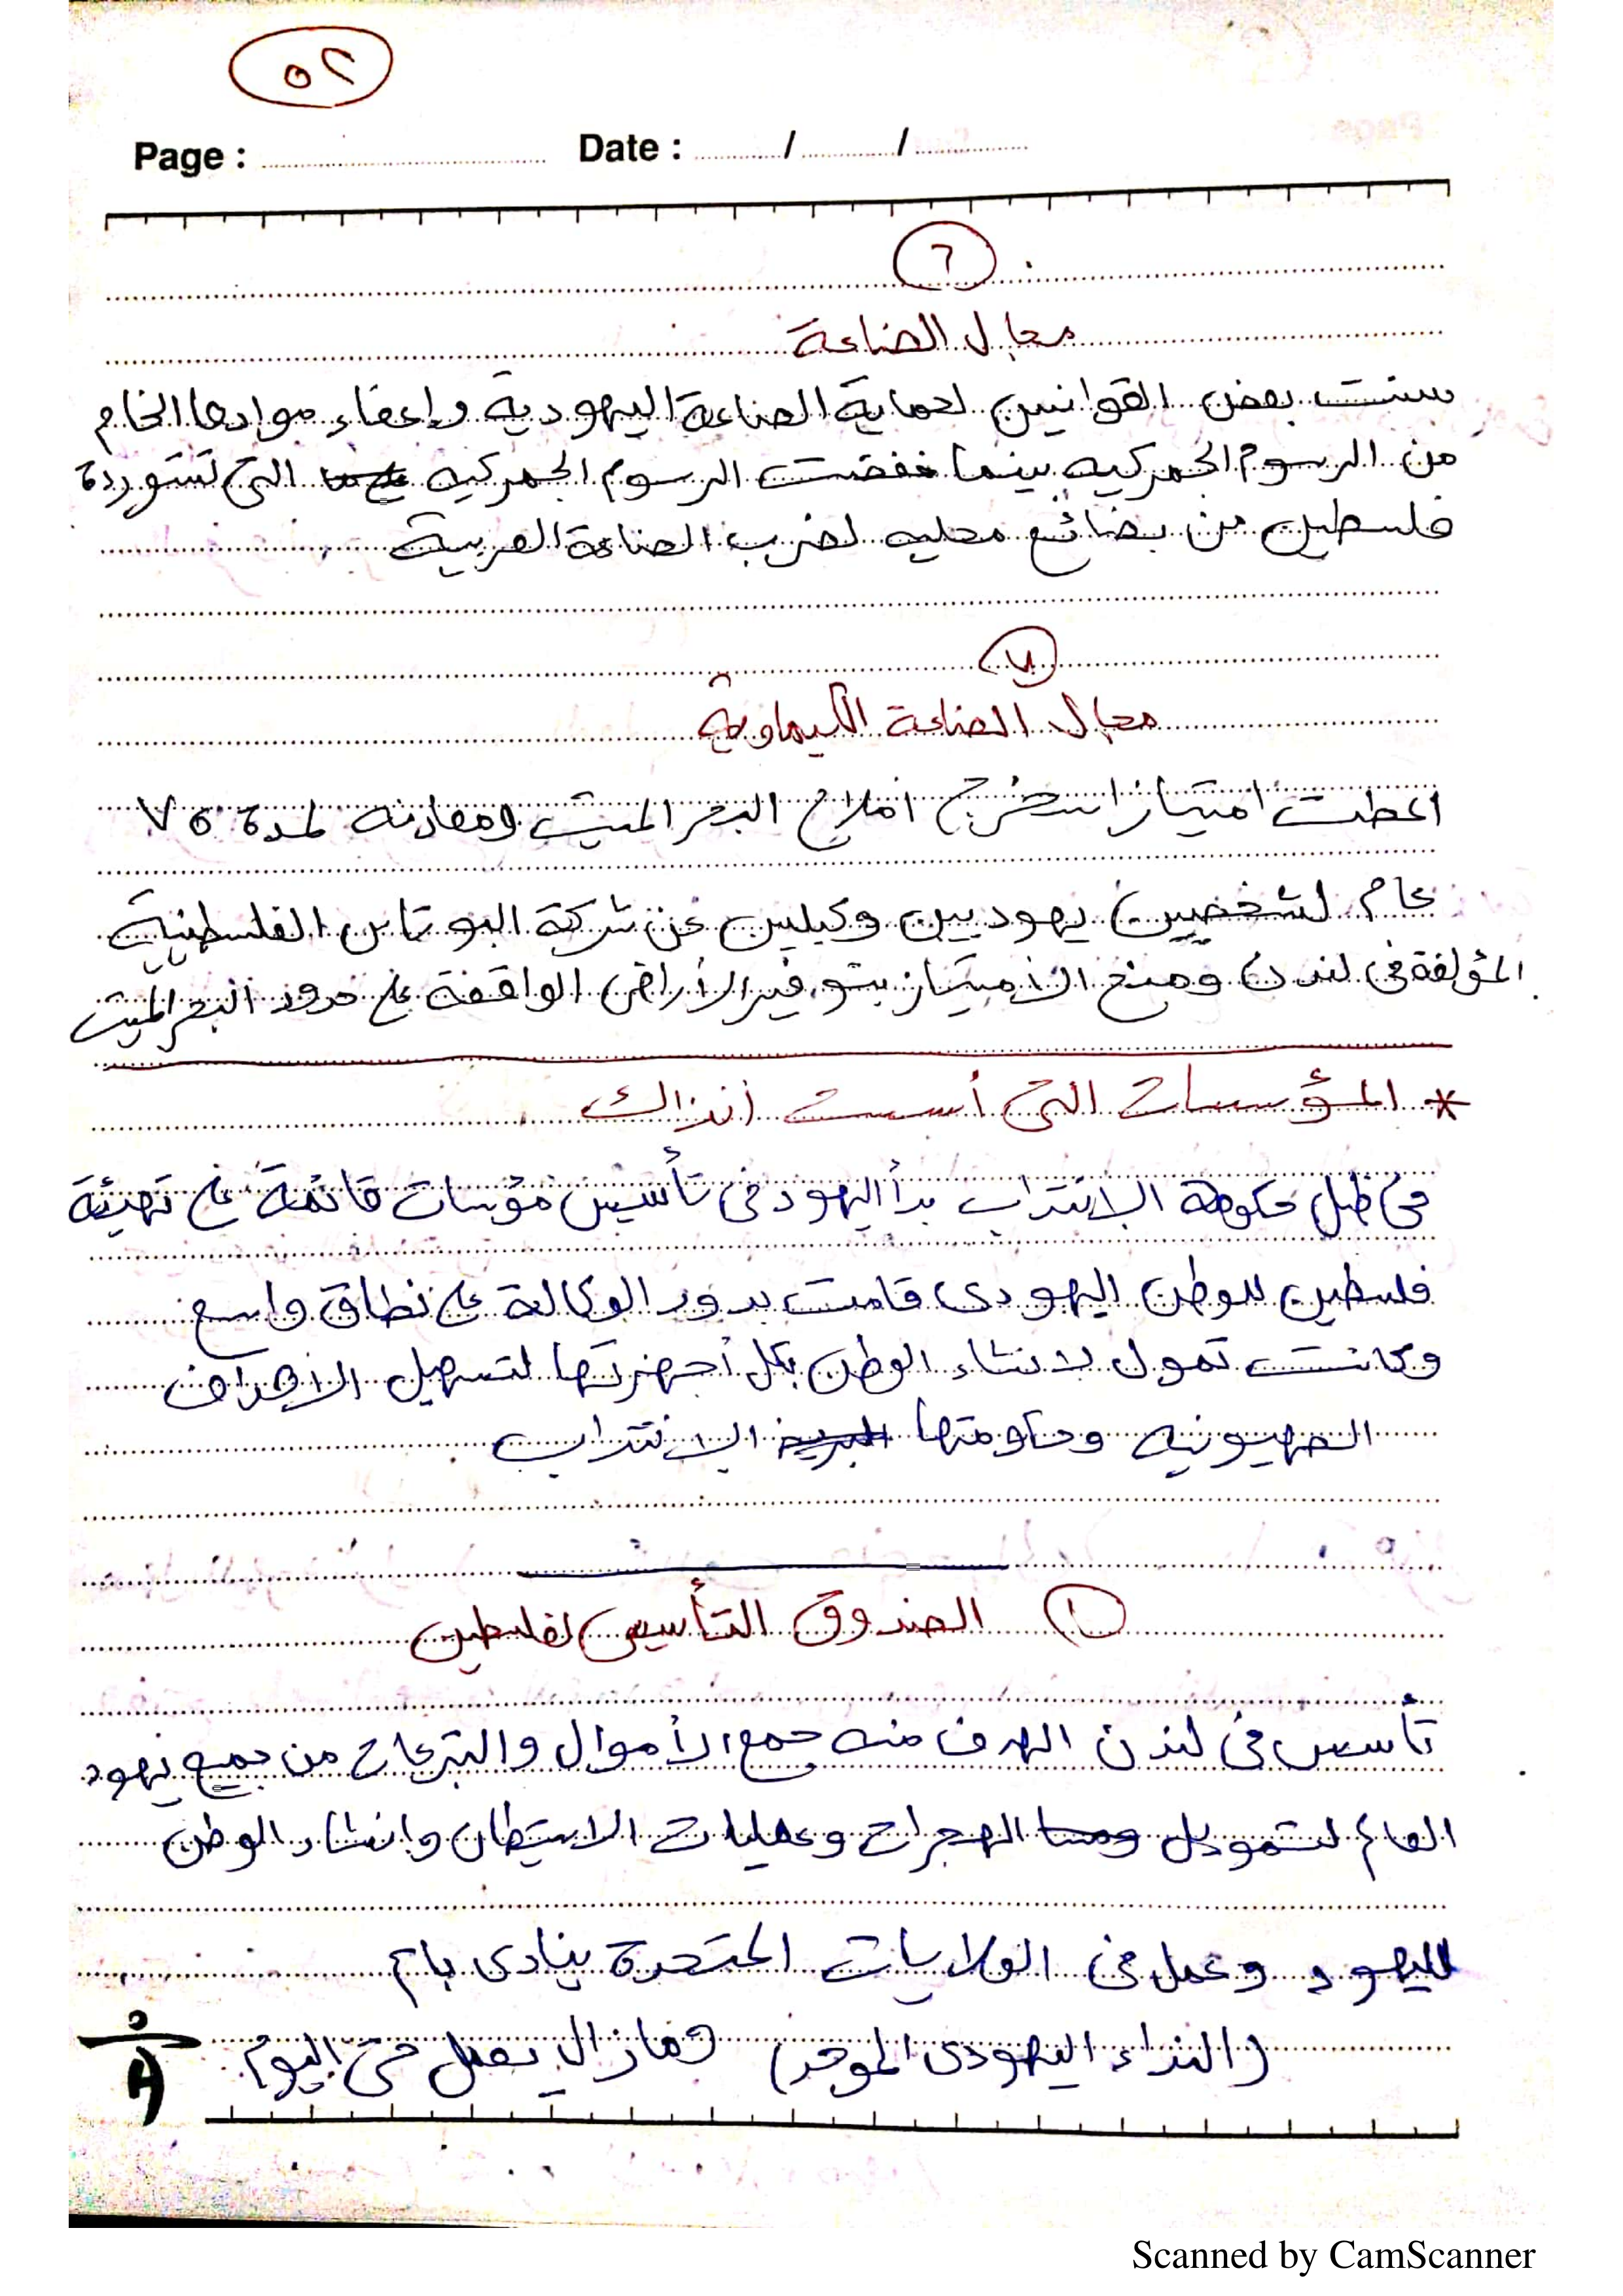 ٥٢
Page : Date : / /
٦
مجال الصناعة
سنت بعض القوانين لحماية الصناعة اليهودية وإعفاء موادها الخام
من الرسوم الجمركيه بينما خفضت الرسوم الجمركيه التى تستوردة
فلسطين من بضائع محليه لضرب الصناعة العربية
٧
مجال الصناعة الكيماوية
اعطت امتياز استخرج املاح البحر الميت ومعادنه لمدة ٧٥
عام لشخصين يهوديين وكيلين عن شركة البوتاس الفلسطينية
المؤلفة فى لندن ومنح الامتياز بتوفير الأراضى الواقفة على حدود البحر الميت
* المؤسسات التى أسست آنذاك
فى ظل حكومة الانتداب بدأ اليهود فى تأسيس مؤسسات قائمة على تهيئة
فلسطين للوطن اليهودى قامت بدور الوكالة على نطاق واسع
وكانت تمول لانشاء الوطن بكل أجهزتها لتسهيل الاهداف
الصهيونيه وحكومتها الانتداب
١ الصندوق التأسيسى لفلسطين
تأسس فى لندن الهدف منه جمع الأموال والتبرعات من جميع يهود
العالم لتمويل الهجرات وعمليات الاستيطان وانشاء الوطن
لليهود وعمل فى الولايات المتحدة ينادى باسم
(النداء اليهودى الموحد) ومازال يعمل حتى اليوم
Scanned by CamScanner